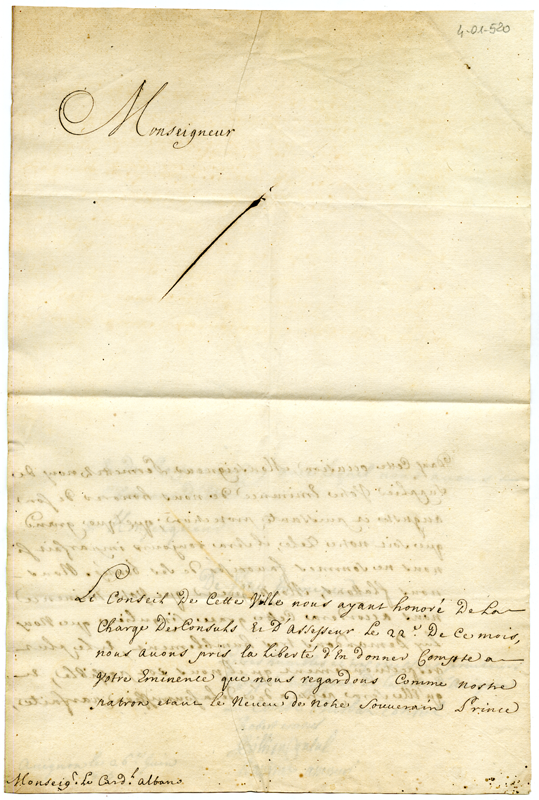 4-01-520
Monseigneur
Le Conseil De Cette Ville nous ayant honoré De La
Charge Des Consuls Et D'Assesseur Le 22e. De Ce mois,
nous auons pris la Liberté d'En donner Compte a
Votre Eminence que nous regardons Comme nostre
patron etant le Neueu de notre Souuerain Prince
Monseigr. Le Cardl. albano